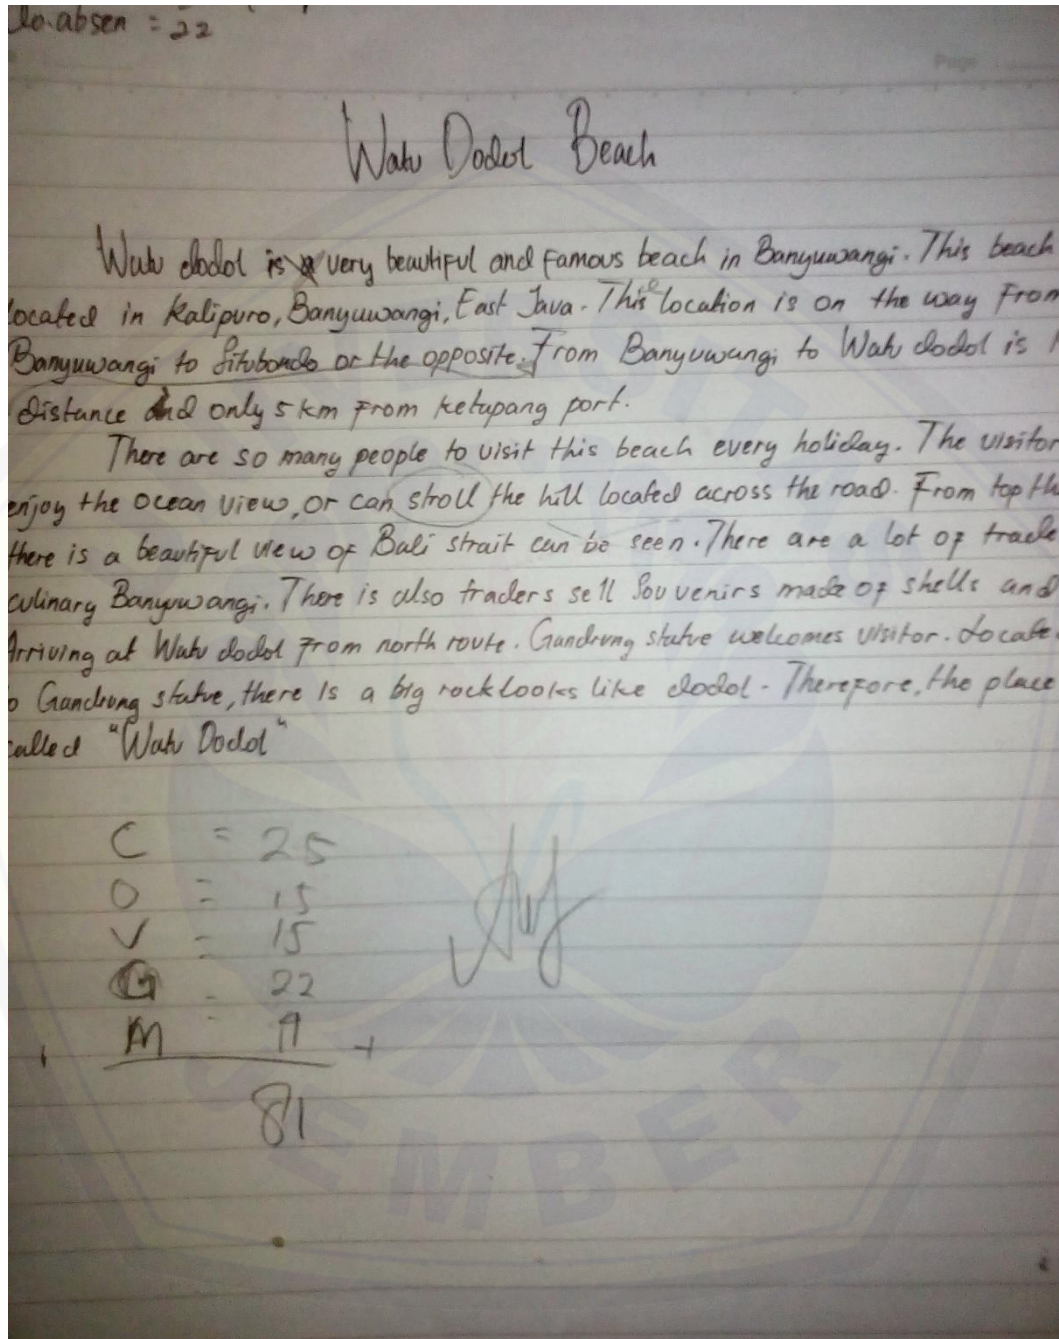 No.absen = 22
Page
Watu Dodol Beach
Watu dodol is very beautiful and famous beach in Banyuwangi. This beach
located in Kalipuro, Banyuwangi, East Java. This location is on the way from
Banyuwangi to Situbondo or the opposite. From Banyuwangi to Watu dodol is 1
distance and only 5 km from ketapang port.
There are so many people to visit this beach every holiday. The visitor
enjoy the ocean view, or can stroll the hill located across the road. From top th
there is a beautiful view of Bali strait can be seen. There are a lot of trade
culinary Banyuwangi. There is also traders sell Souvenirs made of shells and
Arriving at Watu dodol from north route. Gandrung statue welcomes visitor. Locate
o Gandrung statue, there is a big rock looks like dodol - Therefore, the place
called "Watu Dodol"
C = 25
O = 15
V = 15
G = 22
M = 4 +
81
JEMBER